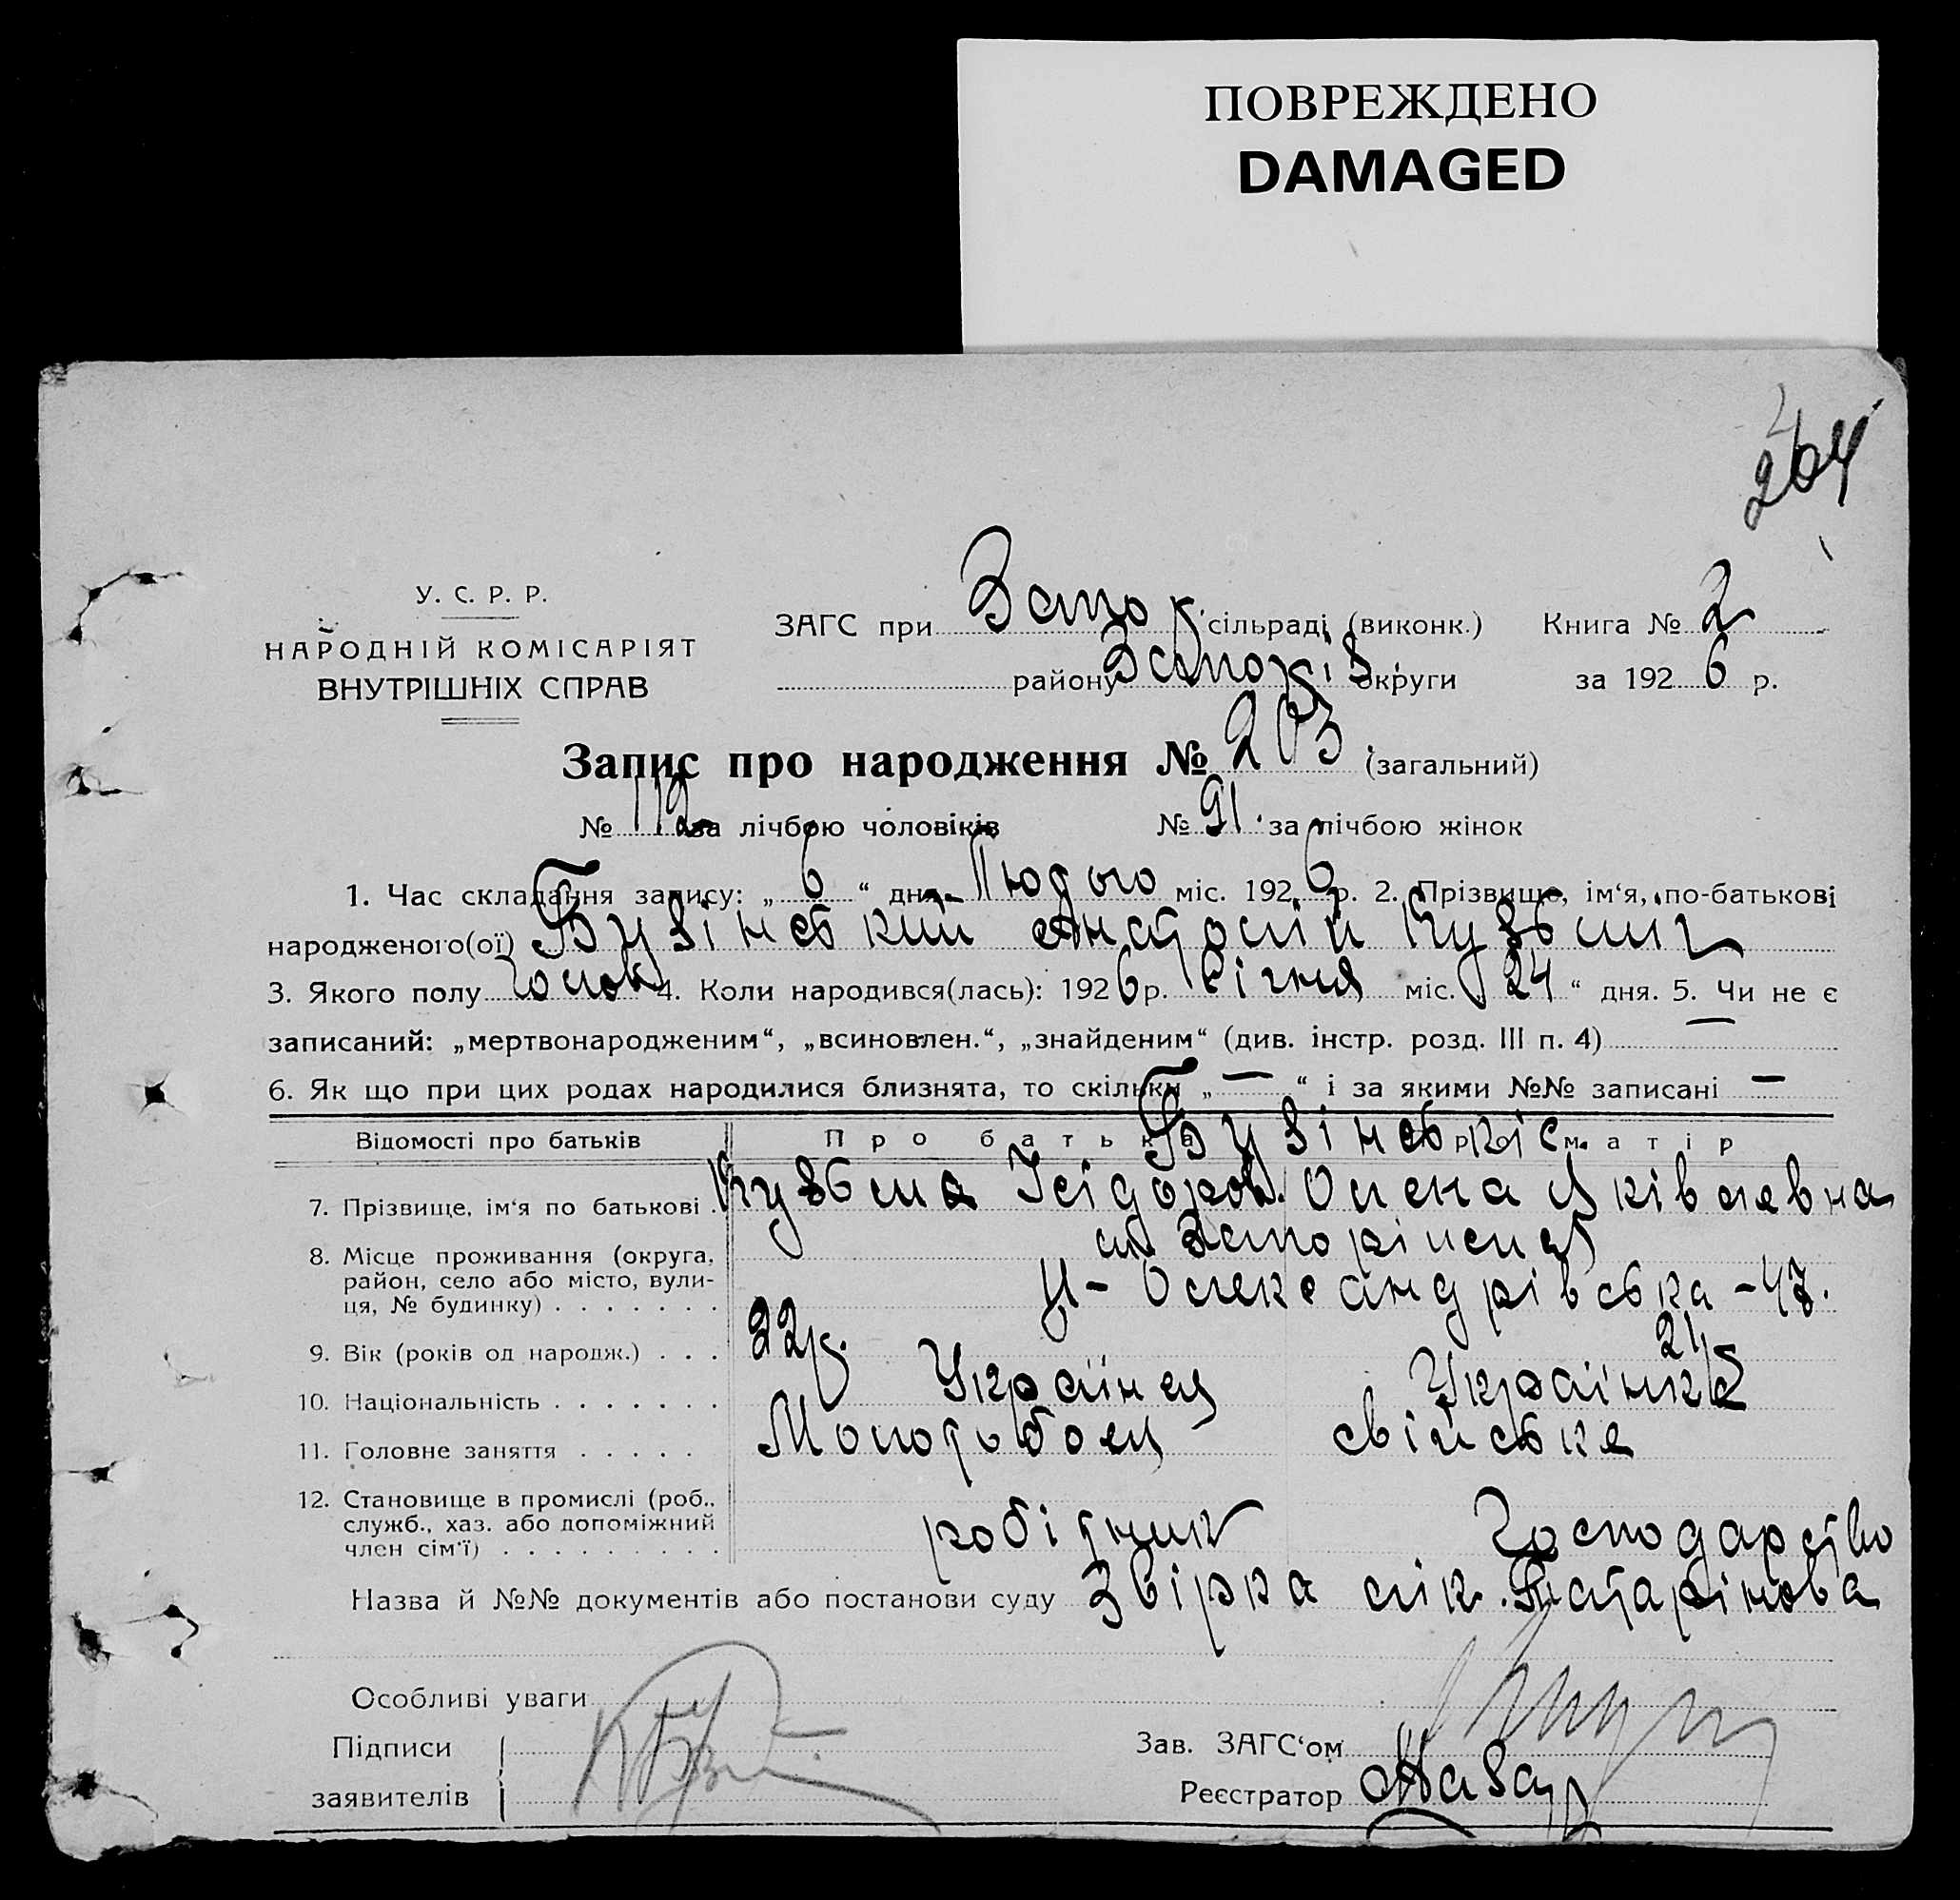 ПОВРЕЖДЕНО
DAMAGED
264
У. С. Р. Р.
НАРОДНІЙ КОМІСАРІЯТ
ВНУТРІШНІХ СПРАВ
ЗАГС при Запок. сільраді (виконк.) Книга № 2
району Запоріз. округи за 1926 р.
Запис про народження № 203 (загальний)
№ 112 за лічбою чоловіків № 91. за лічбою жінок
1. Час складання запису: „ 6 “ дня Лютого міс. 1926 р. 2. Прізвище, ім‘я, по-батькові
народженого(ої) Бузінський Анатолій Кузьмич
3. Якого полу Чолов 4. Коли народився(лась): 1926 р. Січня міс. „ 24 “ дня. 5. Чи не є
записаний: „мертвонародженим“, „всиновлен.“, „знайденим“ (див. інстр. розд. III п. 4) —
6. Як що при цих родах народилися близнята, то скільки „ — “ і за якими №№ записані —
Відомості про батьків Про батька Про матір
Бузінські
7. Прізвище, ім‘я по батькові . Кузьма Ісідоров. Олена Яківлевна
8. Місце проживання (округа, район, село або місто, вули-ця, № будинку) . . . . . . . м Запоріжжя
Олександрівська - 47.
9. Вік (років од народж.) . . . 22р. 21
10. Національність . . . . . . . Українец Українка
11. Головне заняття . . . . . Молотобоец свійське
12. Становище в промислі (роб., служб., хаз. або допоміжний член сім‘ї) . . . . . . . . . робітник Господарство
Назва й №№ документів або постанови суду Звірка лік. Татарінова
Особливі уваги
Підписи
заявителів
Зав. ЗАГС‘ом
Реєстратор